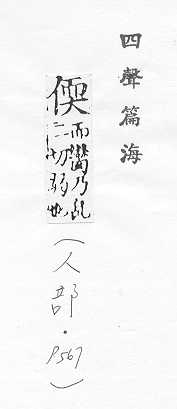 四聲篇海
偄
而臠乃乱
二切弱也
(人部·P.567)